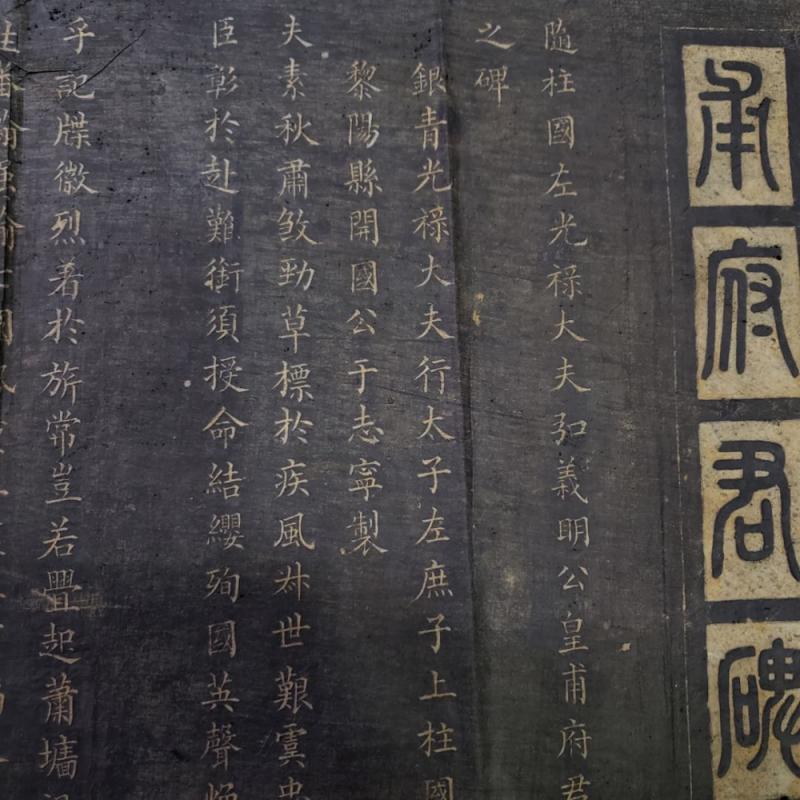 甫府君碑
隨柱國左光祿大夫弘義明公皇甫府君
之碑
銀青光祿大夫行太子左庶子上柱國
黎陽縣開國公于志寧製
夫素秋肅煞勁草標於疾風叔世艱虞忠
臣彰於赴難銜須授命結纓殉國英聲煥
乎記牒徽烈著於旂常豈若舋起蕭墻